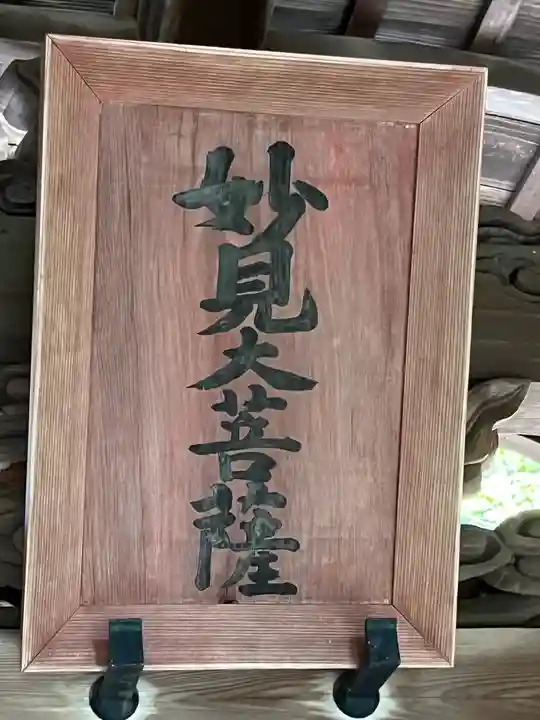 妙見大菩薩